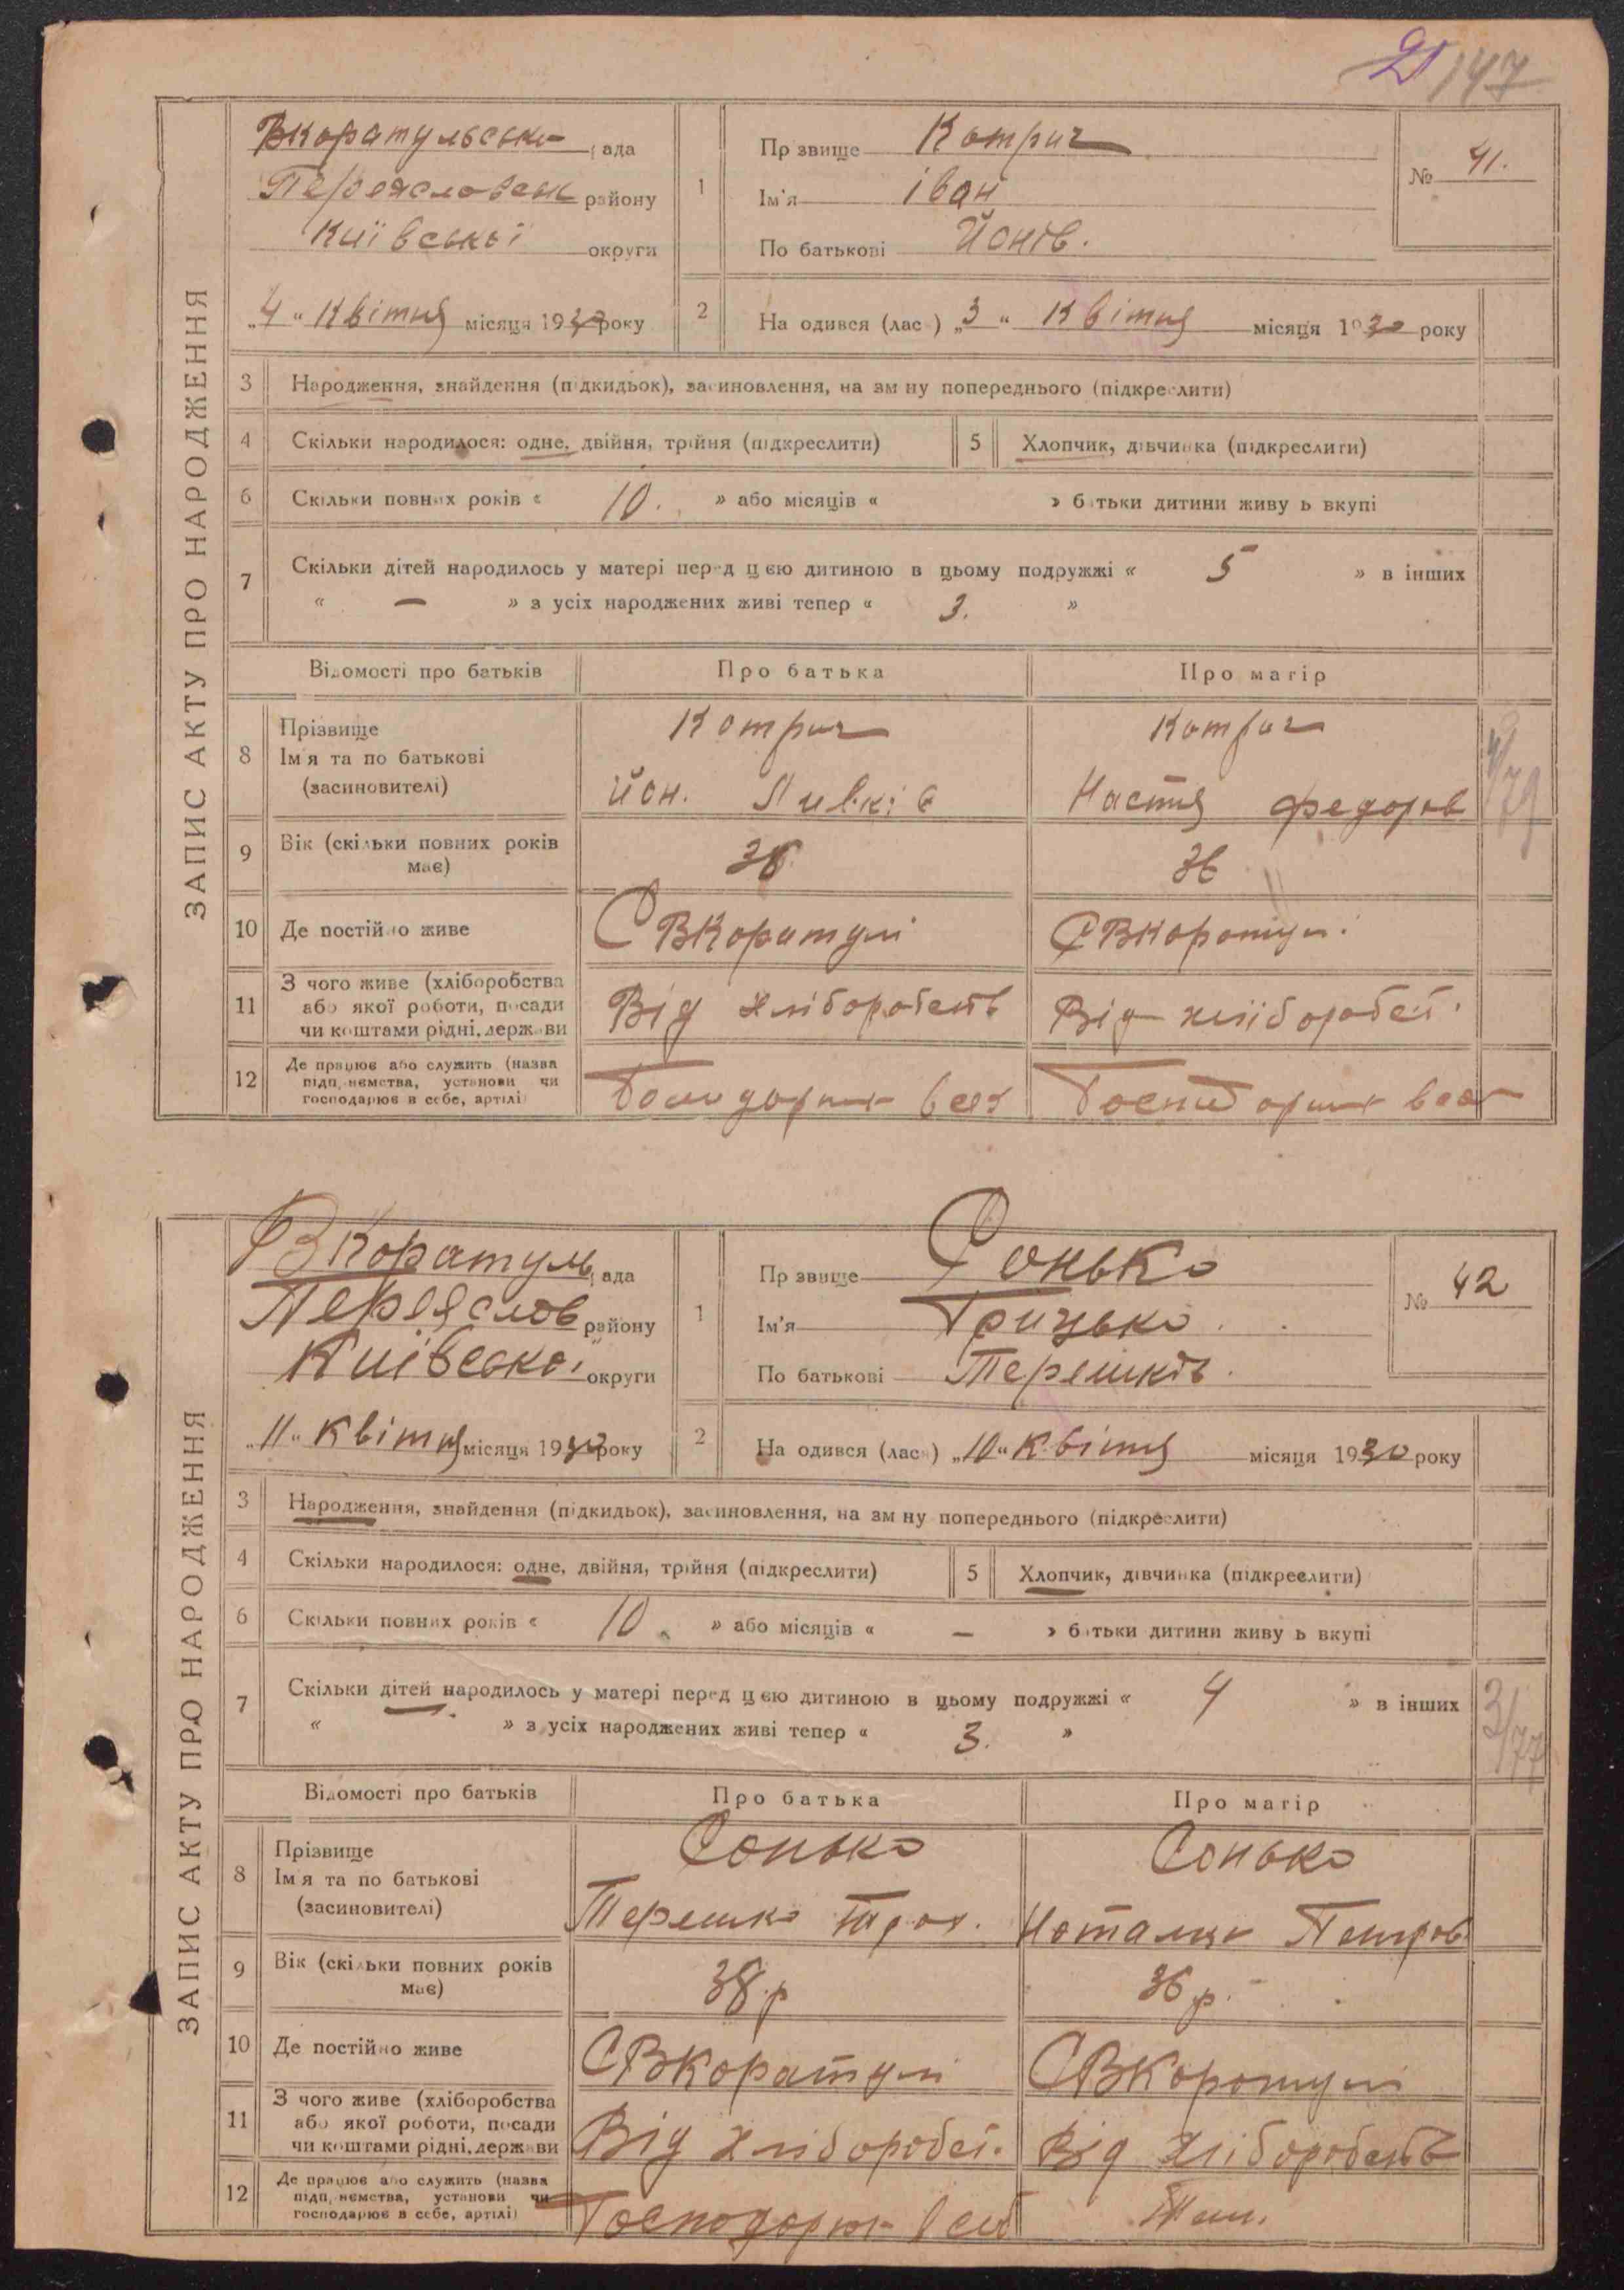 147
ЗАПИС АКТУ ПРО НАРОДЖЕННЯ
Вкоратульська рада
Переяславськ району
Київської округи
„4“ Квітня місяця 1930 року
1 Прізвище Котрич
Ім'я Іван
По батькові Йонів.
№ 41.
2 Народився (лась) „3“ Квітня місяця 1930 року
3 Народження, знайдення (підкидьок), засиновлення, на зміну попереднього (підкреслити)
4 Скільки народилося: одне, двійня, трійня (підкреслити)
5 Хлопчик, дівчинка (підкреслити)
6 Скільки повних років « 10. » або місяців « » батьки дитини живуть вкупі
7 Скільки дітей народилось у матері перед цією дитиною в цьому подружжі « 5 » в інших
« — » з усіх народжених живі тепер « 3. »
Відомості про батьків Про батька Про матір
8 Прізвище
Ім'я та по батькові
(засиновителі)
Котрич Котрич
Йон. Настя Федоров
4/79
9 Вік (скільки повних років
має)
36 36
10 Де постійно живе
С ВКоратулі С ВКоратулі
11 З чого живе (хліборобства
або якої роботи, посади
чи коштами рідні, держави
Від хліборобств Від хлібороб.
12 Де працює або служить (назва
підприємства, установи чи
господарює в себе, артілі)
ЗАПИС АКТУ ПРО НАРОДЖЕННЯ
ВКоратуль рада
Переяслов району
Київської округи
„11“ Квітня місяця 1930 року
1 Прізвище Сонько
Ім'я Грицько
По батькові Терешків.
№ 42
2 Народився (лась) „10“ Квітня місяця 1930 року
3 Народження, знайдення (підкидьок), засиновлення, на зміну попереднього (підкреслити)
4 Скільки народилося: одне, двійня, трійня (підкреслити)
5 Хлопчик, дівчинка (підкреслити)
6 Скільки повних років « 10 » або місяців « — » батьки дитини живуть вкупі
7 Скільки дітей народилось у матері перед цією дитиною в цьому подружжі « 4 » в інших
« — » з усіх народжених живі тепер « 3. »
3/77
Відомості про батьків Про батька Про матір
8 Прізвище
Ім'я та по батькові
(засиновителі)
Сонько Сонько
Терешко Наталка Петров
9 Вік (скільки повних років
має)
38 р 36 р.
10 Де постійно живе
С ВКоратулі С ВКоратулі
11 З чого живе (хліборобства
або якої роботи, посади
чи коштами рідні, держави
Від хліборобст. Від хліборобств
12 Де працює або служить (назва
підприємства, установи чи
господарює в себе, артілі)